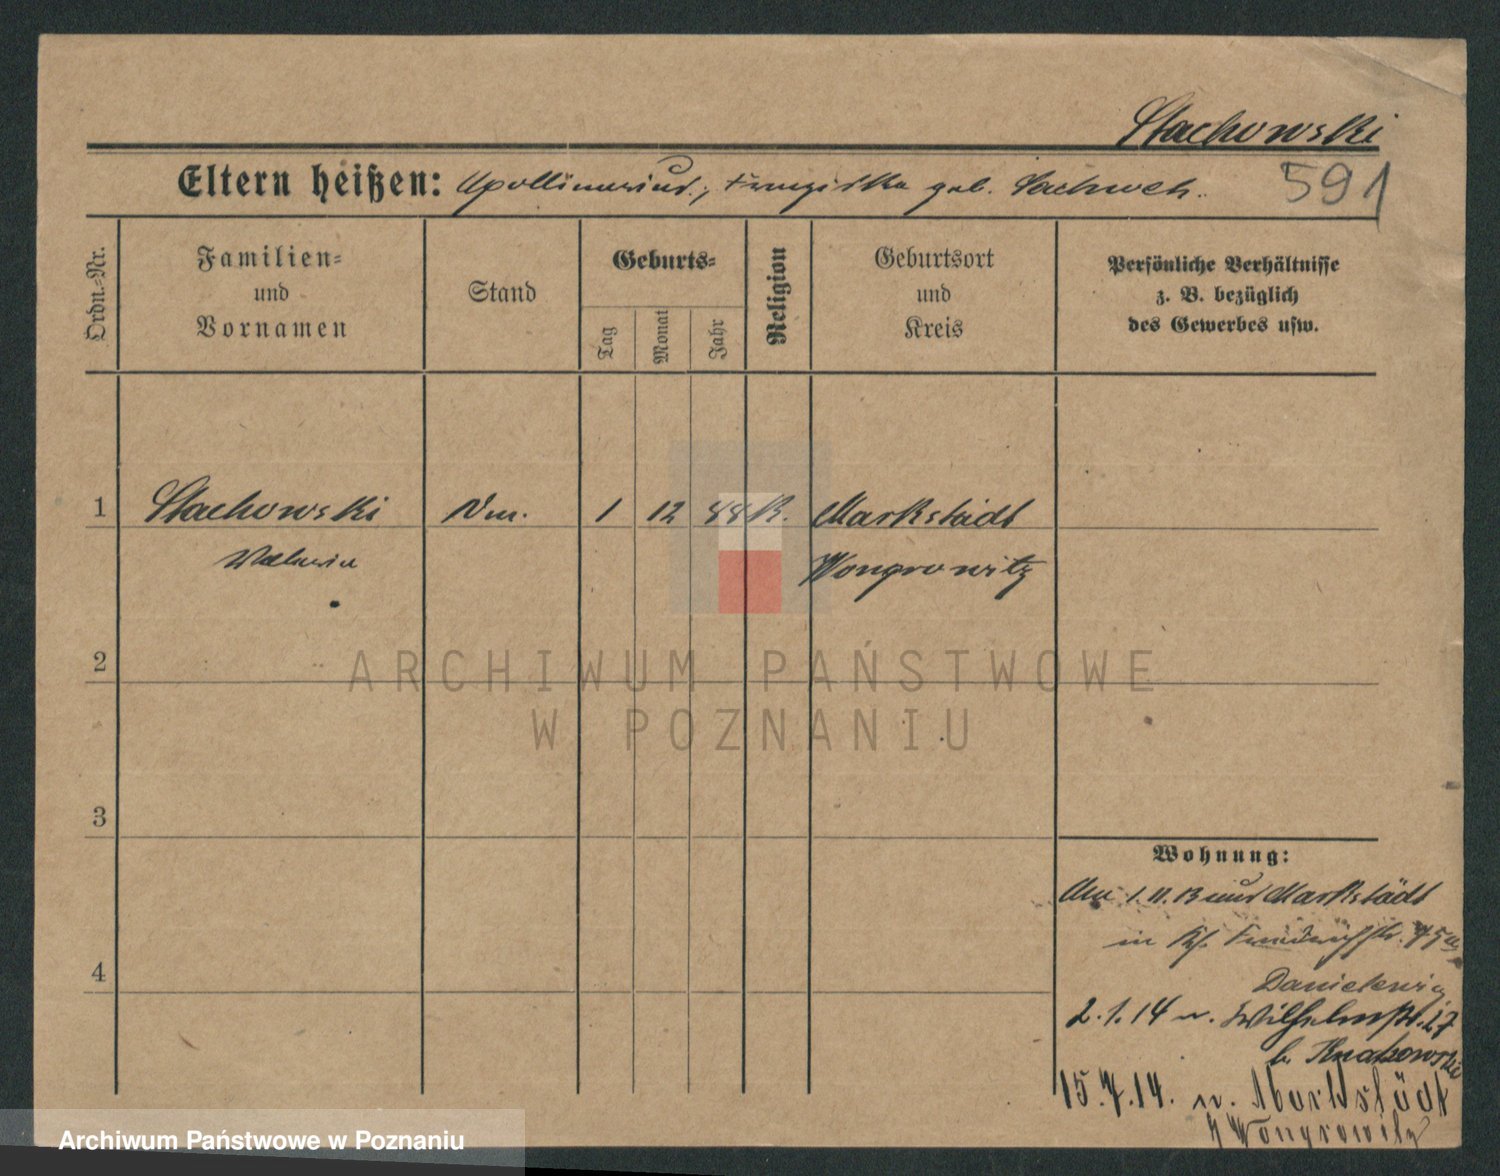 Stachowski
591
Eltern heißen: Apollinarius, Franziska geb. Sachweh.
Ordn.-Nr.
Familien-
und
Vornamen
Stand
Geburts-
Tag
Monat
Jahr
Religion
Geburtsort
und
Kreis
Persönliche Verhältnisse
z. B. bezüglich
des Gewerbes usw.
1 Stachowski 1 12 88 K. Markstädt
Wongrowitz
2
ARCHIWUM PAŃSTWOWE
W POZNANIU
3
Wohnung:
1.11.13 Markstädt
in
4
2.1.14 n. Wilhelmstr. 27
b. Knakowski
15.7.14. n. Markstädt
Wongrowitz
Archiwum Państwowe w Poznaniu